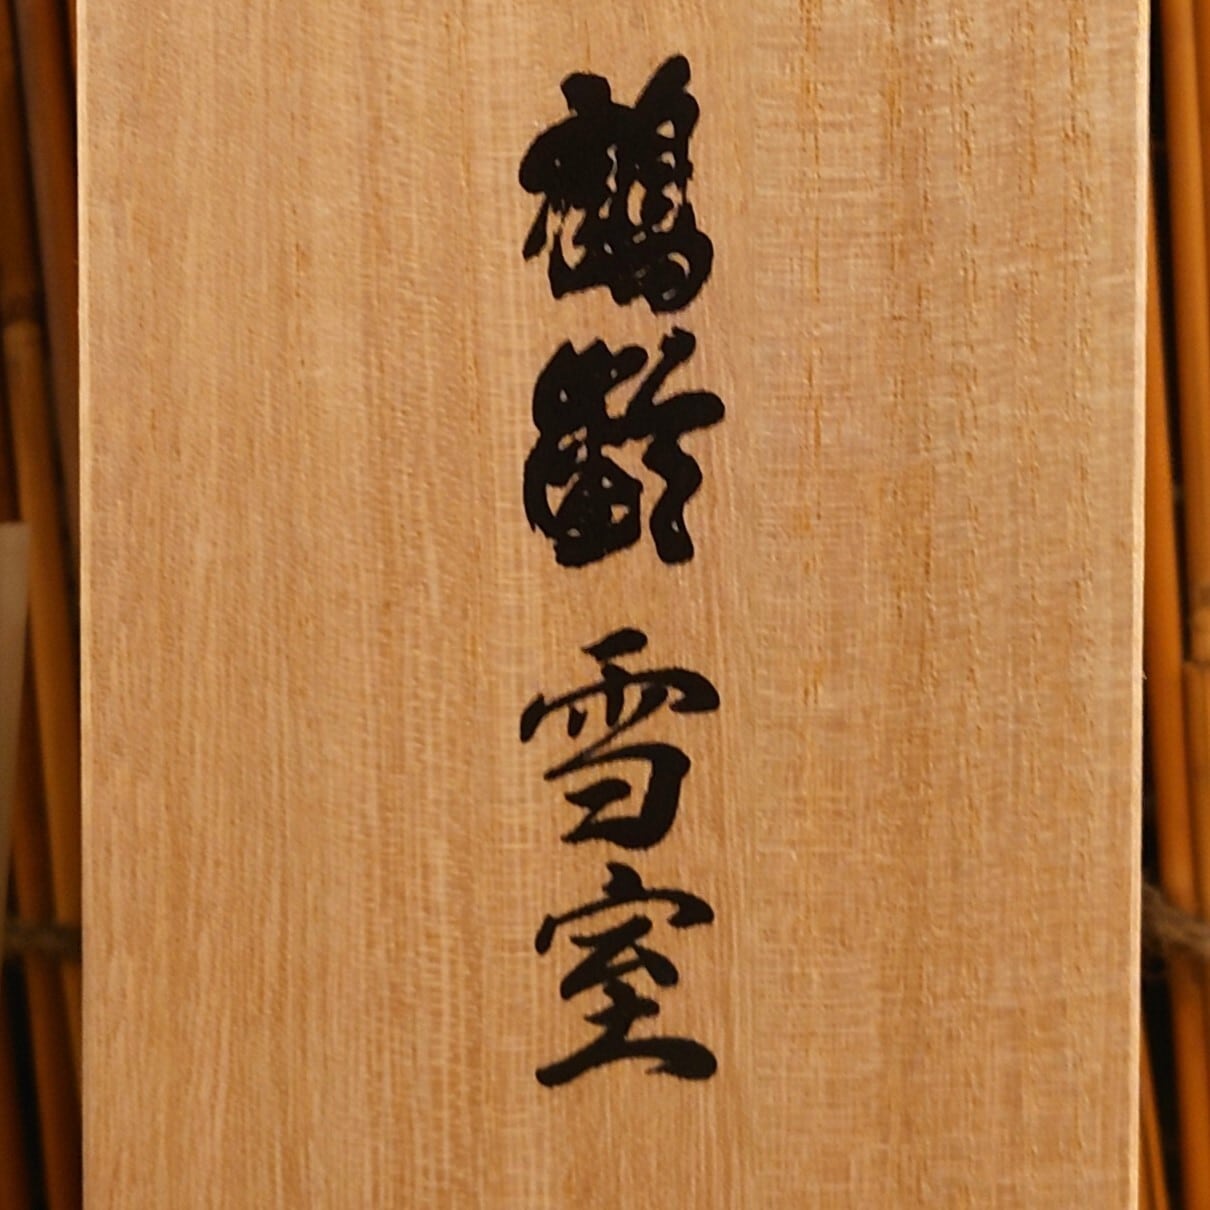 鶴齢雪室